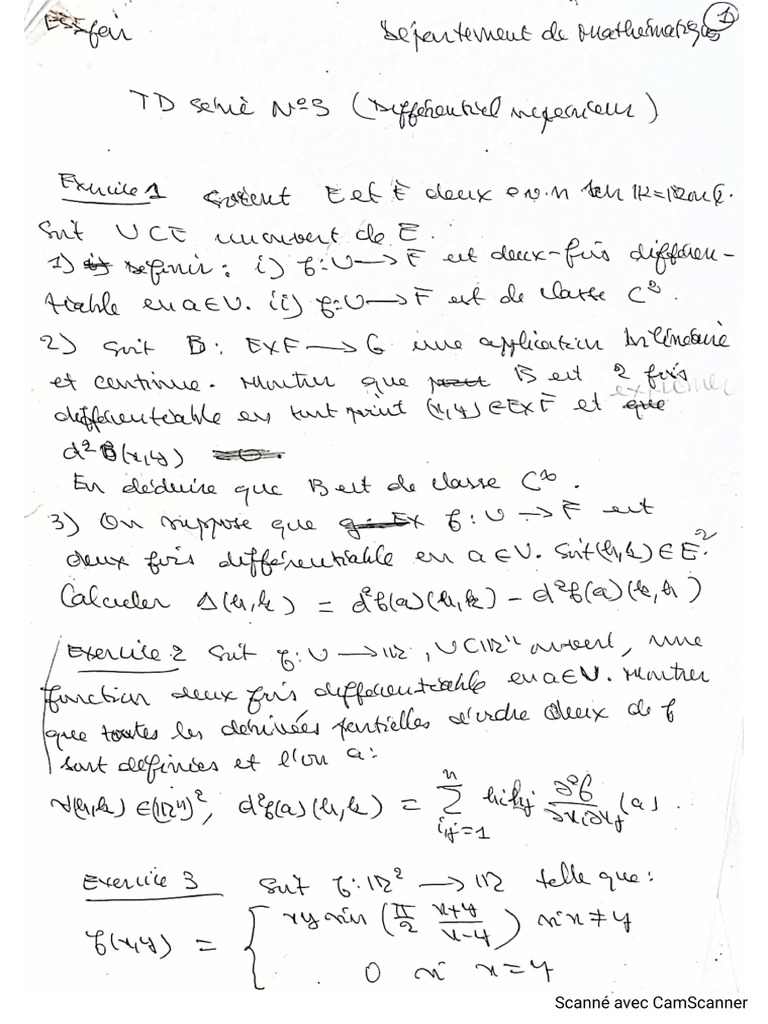 Département de Mathématiques 1
TD série N°3 (Différentiel supérieur)
Exercice 1 Soient E et F deux e.v.n sur IK=IR ou C.
Soit U⊂E un ouvert de E.
1) Définir : i) f:U→F est deux-fois différen-
tiable en a∈U. ii) f:U→F est de classe C².
2) Soit B : E×F→G une application bilinéaire
et continue. Montrer que B est 2 fois
différentiable en tout point (x,y)∈E×F et exprimer
d²B(x,y)
En déduire que B est de classe C^∞.
3) On suppose que f:U→F est
deux fois différentiable en a∈U. Soit (h,k)∈E².
Calculer Δ(h,k) = d²f(a)(h,k) - d²f(a)(k,h)
Exercice 2 Soit f:U→IR, U⊂IRⁿ ouvert, une
fonction deux fois différentiable en a∈U. Montrer
que toutes les dérivées partielles d'ordre deux de f
sont définies et l'on a :
∀(h,k)∈(IRⁿ)², d²f(a)(h,k) = Σ_{i,j=1}^{n} hikj ∂²f/∂xi∂xj (a).
Exercice 3 Soit f:IR²→IR telle que :
f(x,y) = { xy sin (π/2 x+y/x-y) si x≠y
0 si x=y
Scanné avec CamScanner